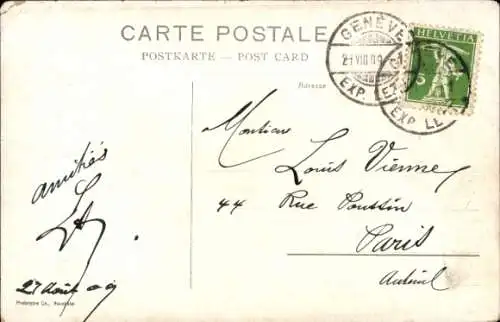 CARTE POSTALE
POSTKARTE — POST CARD
Adresse
GENÈVE
21 VIII 09
EXP. LE
HELVETIA
5
Monsieur
Louis Vienne
44 Rue Poussin
Paris
Auteuil
amitiés
27 Août 09